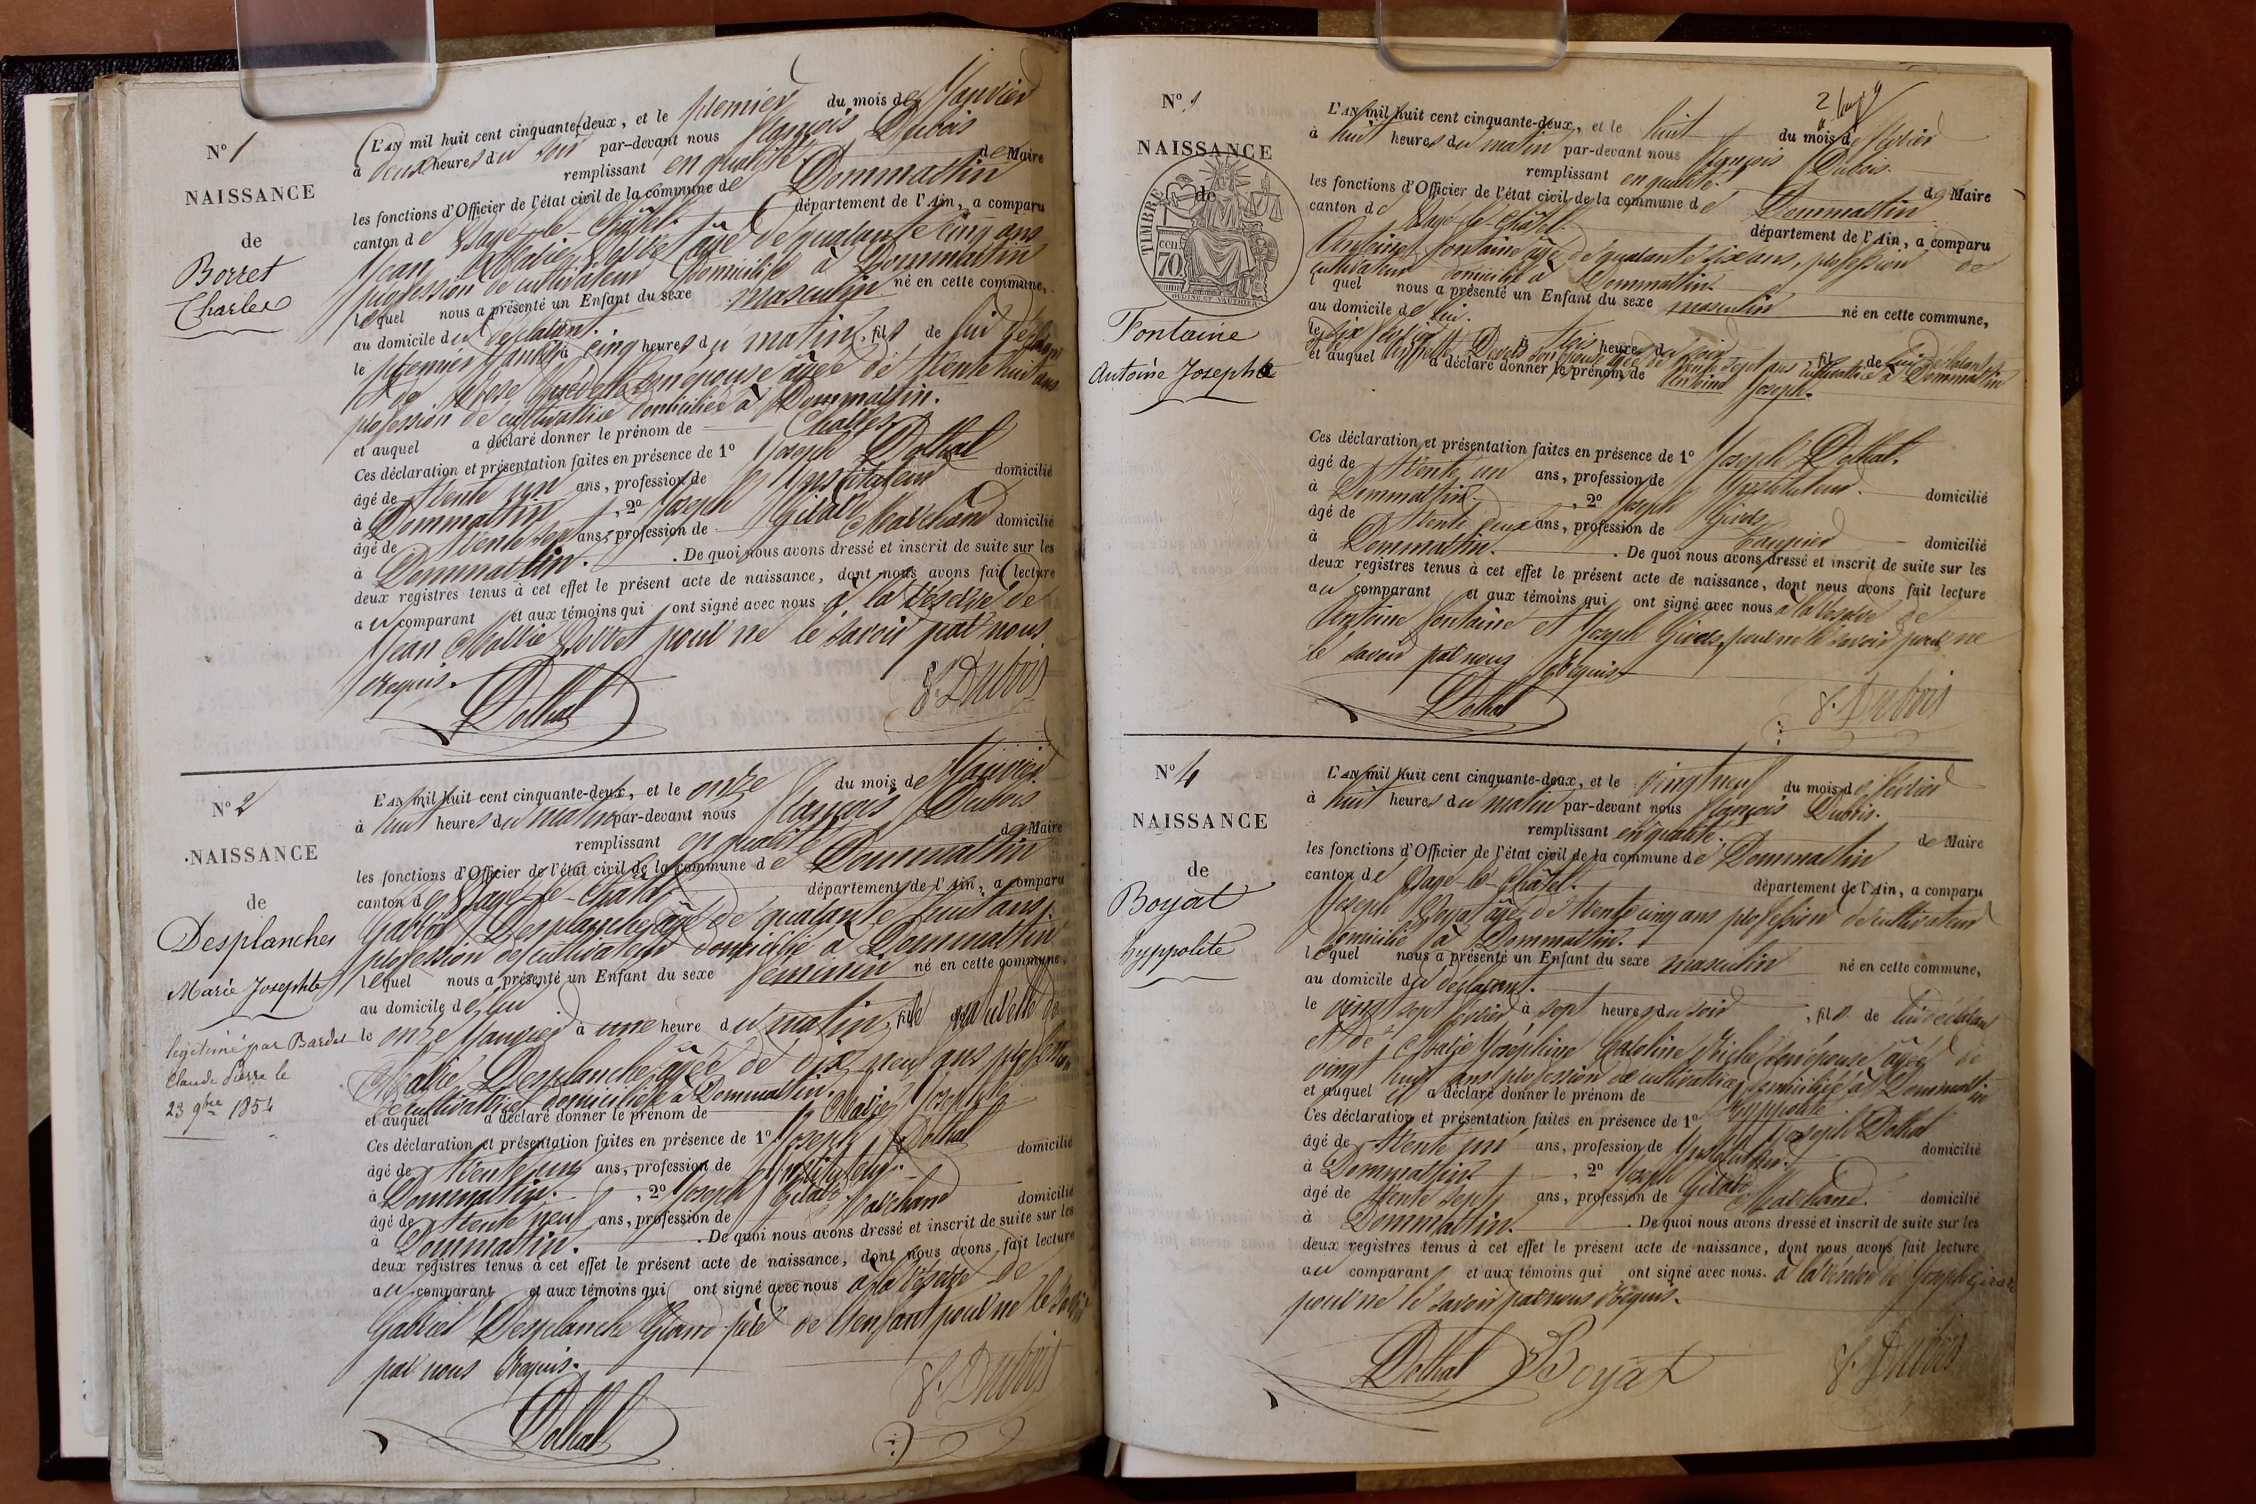 N° 1
NAISSANCE
de
Borret
Charles
L'AN mil huit cent cinquante-deux, et le premier du mois de Janvier
à deux heures du soir par-devant nous François Dubois
remplissant en qualité de Maire
les fonctions d'Officier de l'état civil de la commune de Dommartin
canton de Bagé-le-Châtel département de l'Ain, a comparu
Jean Marie Borret âgé de quarante cinq ans
profession de cultivateur domicilié à Dommartin
lequel nous a présenté un Enfant du sexe masculin né en cette commune,
au domicile du déclarant.
le premier Janvier à cinq heures du matin, fils de lui déclarant
et de son épouse âgée de trente huit ans
profession de cultivatrice domiciliée à Dommartin.
et auquel a déclaré donner le prénom de Charles
Ces déclaration et présentation faites en présence de 1° Joseph Dothal
âgé de trente un ans, profession de Instituteur domicilié
à Dommartin, 2° Joseph Girard
âgé de trente sept ans, profession de Marchand domicilié
à Dommartin. De quoi nous avons dressé et inscrit de suite sur les
deux registres tenus à cet effet le présent acte de naissance, dont nous avons fait lecture
au comparant et aux témoins qui ont signé avec nous à la réserve de
Jean Marie Borret pour ne le savoir par nous
requis.
Dothal F. Dubois
N° 2
NAISSANCE
de
Desplanches
Marie Josephte
légitimé par Bardet
Claude Pierre le
23 9bre 1854
L'AN mil huit cent cinquante-deux, et le onze du mois de Janvier
à huit heures du matin par-devant nous François Dubois
remplissant en qualité de Maire
les fonctions d'Officier de l'état civil de la commune de Dommartin
canton de Bagé-le-Châtel département de l'Ain, a comparu
Gabriel Desplanche âgé de quarante huit ans
profession de cultivateur domicilié à Dommartin
lequel nous a présenté un Enfant du sexe féminin né en cette commune,
au domicile de lui
le onze Janvier à une heure du matin, fille naturelle de
Marie Desplanche âgée de dix neuf ans profession
de cultivatrice domiciliée à Dommartin
et auquel a déclaré donner le prénom de Marie Josephte
Ces déclaration et présentation faites en présence de 1° Joseph Dothal
âgé de trente un ans, profession de Instituteur domicilié
à Dommartin, 2° Joseph Girard
âgé de trente neuf ans, profession de Marchand domicilié
à Dommartin. De quoi nous avons dressé et inscrit de suite sur les
deux registres tenus à cet effet le présent acte de naissance, dont nous avons fait lecture
au comparant et aux témoins qui ont signé avec nous à la réserve de
Gabriel Desplanche Grand père de l'enfant pour ne le savoir
par nous requis.
Dothal F. Dubois
N° 3
NAISSANCE
de
TIMBRE
CEN 70
Fontaine
Antoine Joseph
L'AN mil huit cent cinquante-deux, et le huit du mois de février
à huit heures du matin par-devant nous François Dubois.
remplissant en qualité de Maire
les fonctions d'Officier de l'état civil de la commune de Dommartin
canton de Bagé-le-Châtel. département de l'Ain, a comparu
Antoine fontaine âgé de quarante six ans, profession de
cultivateur domicilié à Dommartin.
lequel nous a présenté un Enfant du sexe masculin né en cette commune,
au domicile de lui.
le six février à trois heures du soir, fils de lui déclarant
et de Dubois son épouse âgée de trente sept ans cultivatrice à Dommartin
et auquel a déclaré donner le prénom de Antoine Joseph.
Ces déclaration et présentation faites en présence de 1° Joseph Dothal.
âgé de trente un ans, profession de Instituteur. domicilié
à Dommartin. 2° Joseph
âgé de trente deux ans, profession de domicilié
à Dommartin. De quoi nous avons dressé et inscrit de suite sur les
deux registres tenus à cet effet le présent acte de naissance, dont nous avons fait lecture
au comparant et aux témoins qui ont signé avec nous à la réserve de
Antoine fontaine et Joseph pour ne le savoir pour ne
le savoir par nous requis
Dothal F. Dubois
N° 4
NAISSANCE
de
Boyat
hyppolite
L'AN mil huit cent cinquante-deux, et le vingt neuf du mois de février
à huit heures du matin par-devant nous François Dubois.
remplissant en qualité de Maire
les fonctions d'Officier de l'état civil de la commune de Dommartin
canton de Bagé-le-Châtel. département de l'Ain, a comparu
Joseph Boyat âgé de trente cinq ans profession de cultivateur
domicilié à Dommartin.
lequel nous a présenté un Enfant du sexe masculin né en cette commune,
au domicile du déclarant.
le vingt sept février à sept heures du soir, fils de lui déclarant
et de Marie Joséphine Caroline son épouse âgée de
vingt huit ans profession de cultivatrice domiciliée à Dommartin
et auquel a déclaré donner le prénom de hyppolite
Ces déclaration et présentation faites en présence de 1° Joseph Dothal
âgé de trente un ans, profession de Instituteur. domicilié
à Dommartin, 2° Joseph Girard
âgé de trente sept ans, profession de Marchand. domicilié
à Dommartin. De quoi nous avons dressé et inscrit de suite sur les
deux registres tenus à cet effet le présent acte de naissance, dont nous avons fait lecture
au comparant et aux témoins qui ont signé avec nous. à la réserve de Joseph Girard
pour ne le savoir par nous requis.
Dothal Boyat F. Dubois